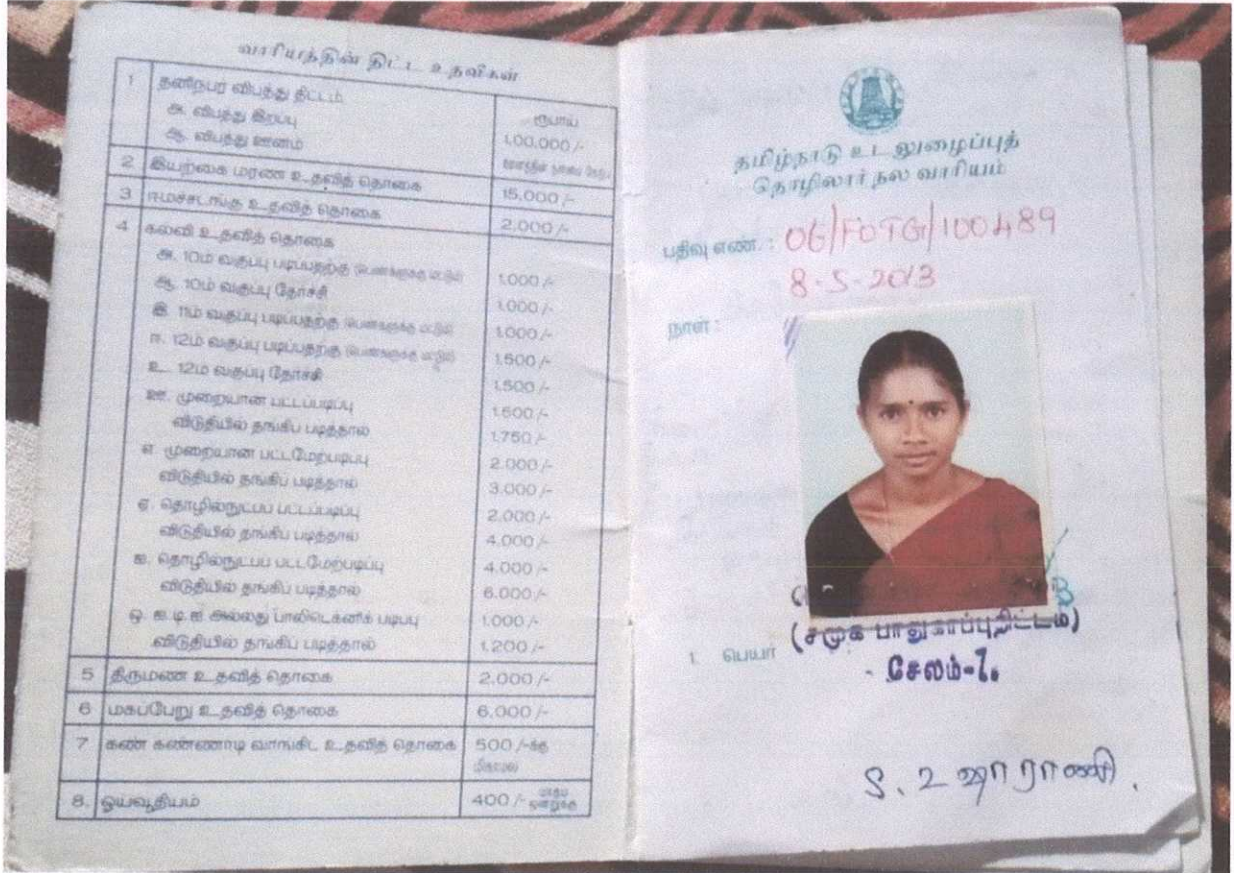 வாரியத்தின் திட்ட உதவிகள்
1 தனிநபர் விபத்து திட்டம் ரூபாய்
அ. விபத்து இறப்பு 1,00,000/-
ஆ. விபத்து ஊனம்
2 இயற்கை மரண உதவித் தொகை 15,000/-
3 ஈமச்சடங்கு உதவித் தொகை 2,000/-
4 கல்வி உதவித் தொகை
அ. 10ம் வகுப்பு படிப்பதற்கு (பெண்களுக்கு மட்டும்) 1,000/-
ஆ. 10ம் வகுப்பு தேர்ச்சி 1,000/-
இ. 11ம் வகுப்பு படிப்பதற்கு (பெண்களுக்கு மட்டும்) 1,000/-
ஈ. 12ம் வகுப்பு படிப்பதற்கு (பெண்களுக்கு மட்டும்) 1,500/-
உ. 12ம் வகுப்பு தேர்ச்சி 1,500/-
ஊ. முறையான பட்டப்படிப்பு 1,500/-
விடுதியில் தங்கிப் படித்தால் 1,750/-
எ. முறையான பட்டமேற்படிப்பு 2,000/-
விடுதியில் தங்கிப் படித்தால் 3,000/-
ஏ. தொழில்நுட்பப் பட்டப்படிப்பு 2,000/-
விடுதியில் தங்கிப் படித்தால் 4,000/-
ஐ. தொழில்நுட்பப் பட்டமேற்படிப்பு 4,000/-
விடுதியில் தங்கிப் படித்தால் 6,000/-
ஒ. ஐ.டி.ஐ அல்லது பாலிடெக்னிக் படிப்பு 1,000/-
விடுதியில் தங்கிப் படித்தால் 1,200/-
5 திருமண உதவித் தொகை 2,000/-
6 மகப்பேறு உதவித் தொகை 6,000/-
7 கண் கண்ணாடி வாங்கிட உதவித் தொகை 500/-க்கு
மிகாமல்
8. ஓய்வூதியம் 400/- மாதம் ஒன்றுக்கு
தமிழ்நாடு உடலுழைப்புத்
தொழிலாளர் நல வாரியம்
பதிவு எண். : 06/FOTG/100489
8-5-2013
நாள் :
(சமூக பாதுகாப்புதிட்டம்)
1. பெயர்
சேலம்-7.
S. உஷாராணி.